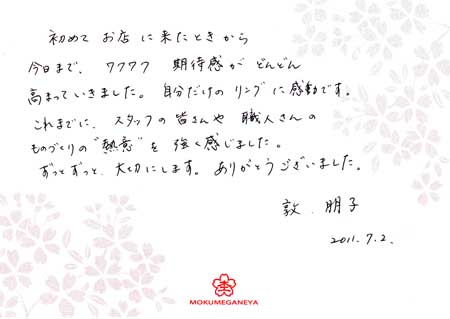 初めて お店 に来たときから
今日まで、ワクワク 期待感が どんどん
高まっていきました。自分だけの リングに感動です。
これまでに、スタッフの 皆さんや 職人さんの
ものづくりの "熱意" を 強く感じました。
ずっとずっと、大切にします。ありがとうございました。
敦、朋子
2011.7.2.
MOKUMEGANEYA